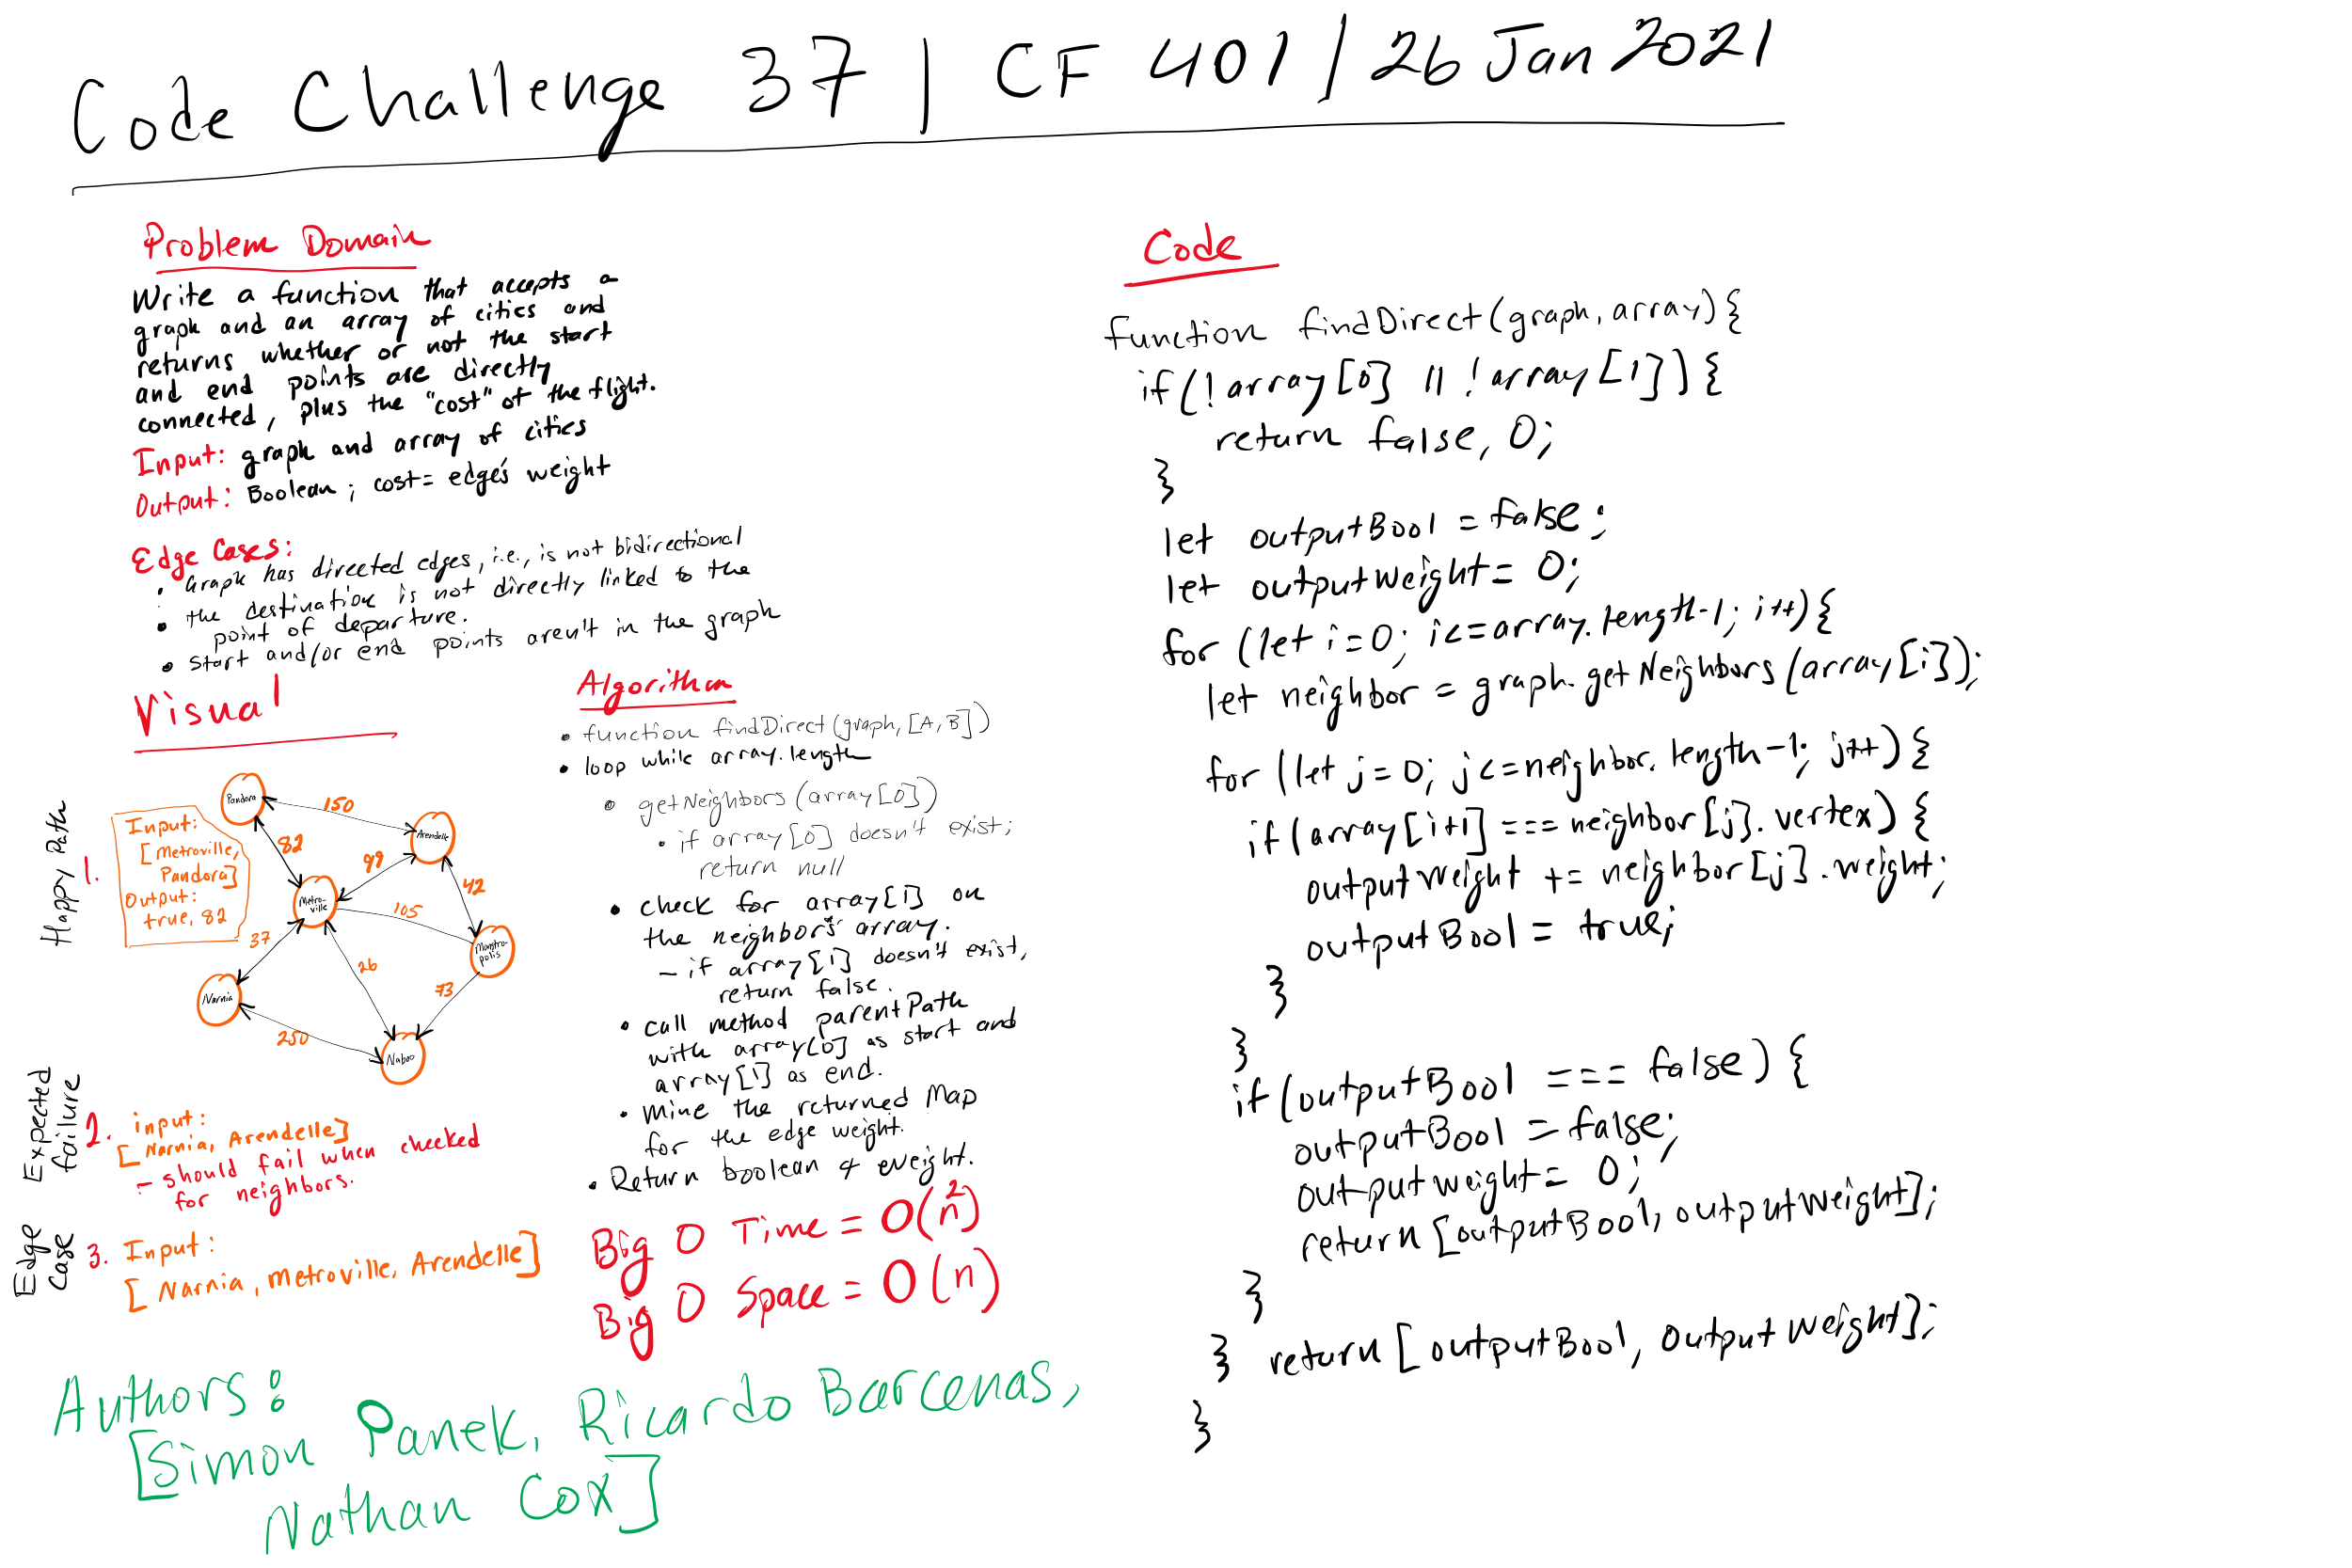 Code Challenge 37 | CF 401 / 26 Jan 2021
Problem Domain
Write a function that accepts a
graph and an array of cities and
returns whether or not the start
and end points are directly
connected, plus the "cost" of the flight.
Input: graph and array of cities
Output: Boolean; cost= edge's weight
Edge Cases:
• Graph has directed edges, i.e., is not bidirectional
• the destination is not directly linked to the
point of departure.
• start and/or end points aren't in the graph
Visual
Happy Path
1.
Input:
[Metroville,
Pandora]
Output:
true, 82
Pandora
150
Arendelle
82
99
42
Metro-
ville
105
Monstro-
polis
37
26
73
Narnia
250
Naboo
Expected
failure
2. input:
[Narnia, Arendelle]
- should fail when checked
for neighbors.
Edge
Case
3. Input:
[Narnia, Metroville, Arendelle]
Algorithm
• function findDirect(graph, [A, B])
• loop while array.length
• getNeighbors (array[0])
• if array[0] doesn't exist;
return null
• check for array[1] on
the neighbor's array.
- if array[1] doesn't exist,
return false.
• call method parentPath
with array[0] as start and
array[1] as end.
• mine the returned Map
for the edge weight.
• Return boolean &
Big O Time = O(n²)
Big O Space = O(n)
Authors:
[Simon Panek, Ricardo Barcenas,
Nathan Cox]
Code
function findDirect(graph, array){
if(!array[0] || !array[1]){
return false, 0;
}
let outputBool = false;
let outputWeight = 0;
for (let i=0; i<=array.length-1; i++){
let neighbor = graph.getNeighbors(array[i]);
for (let j=0; j<=neighbor.length-1; j++){
if(array[i+1] === neighbor[j].vertex) {
outputWeight += neighbor[j].weight;
outputBool = true;
}
}
if(outputBool === false) {
outputBool = false;
outputWeight = 0;
return [outputBool, outputWeight];
}
} return [outputBool, outputWeight];
}